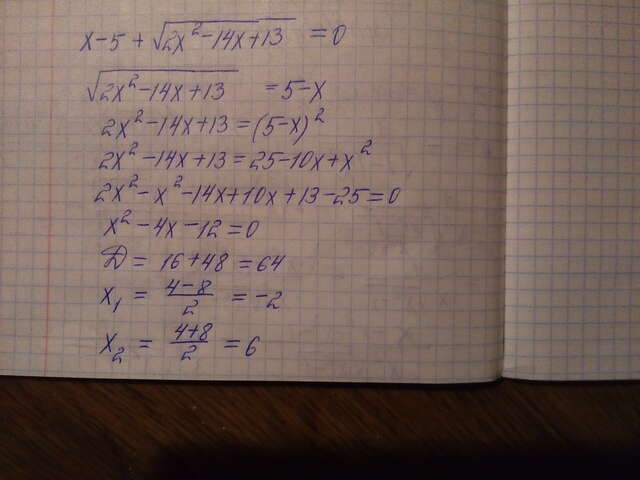 x-5+√(2x²-14x+13) = 0
√(2x²-14x+13) = 5-x
2x²-14x+13=(5-x)²
2x²-14x+13=25-10x+x²
2x²-x²-14x+10x+13-25=0
x²-4x-12=0
D = 16+48=64
x₁ = (4-8)/2 = -2
x₂ = (4+8)/2 = 6